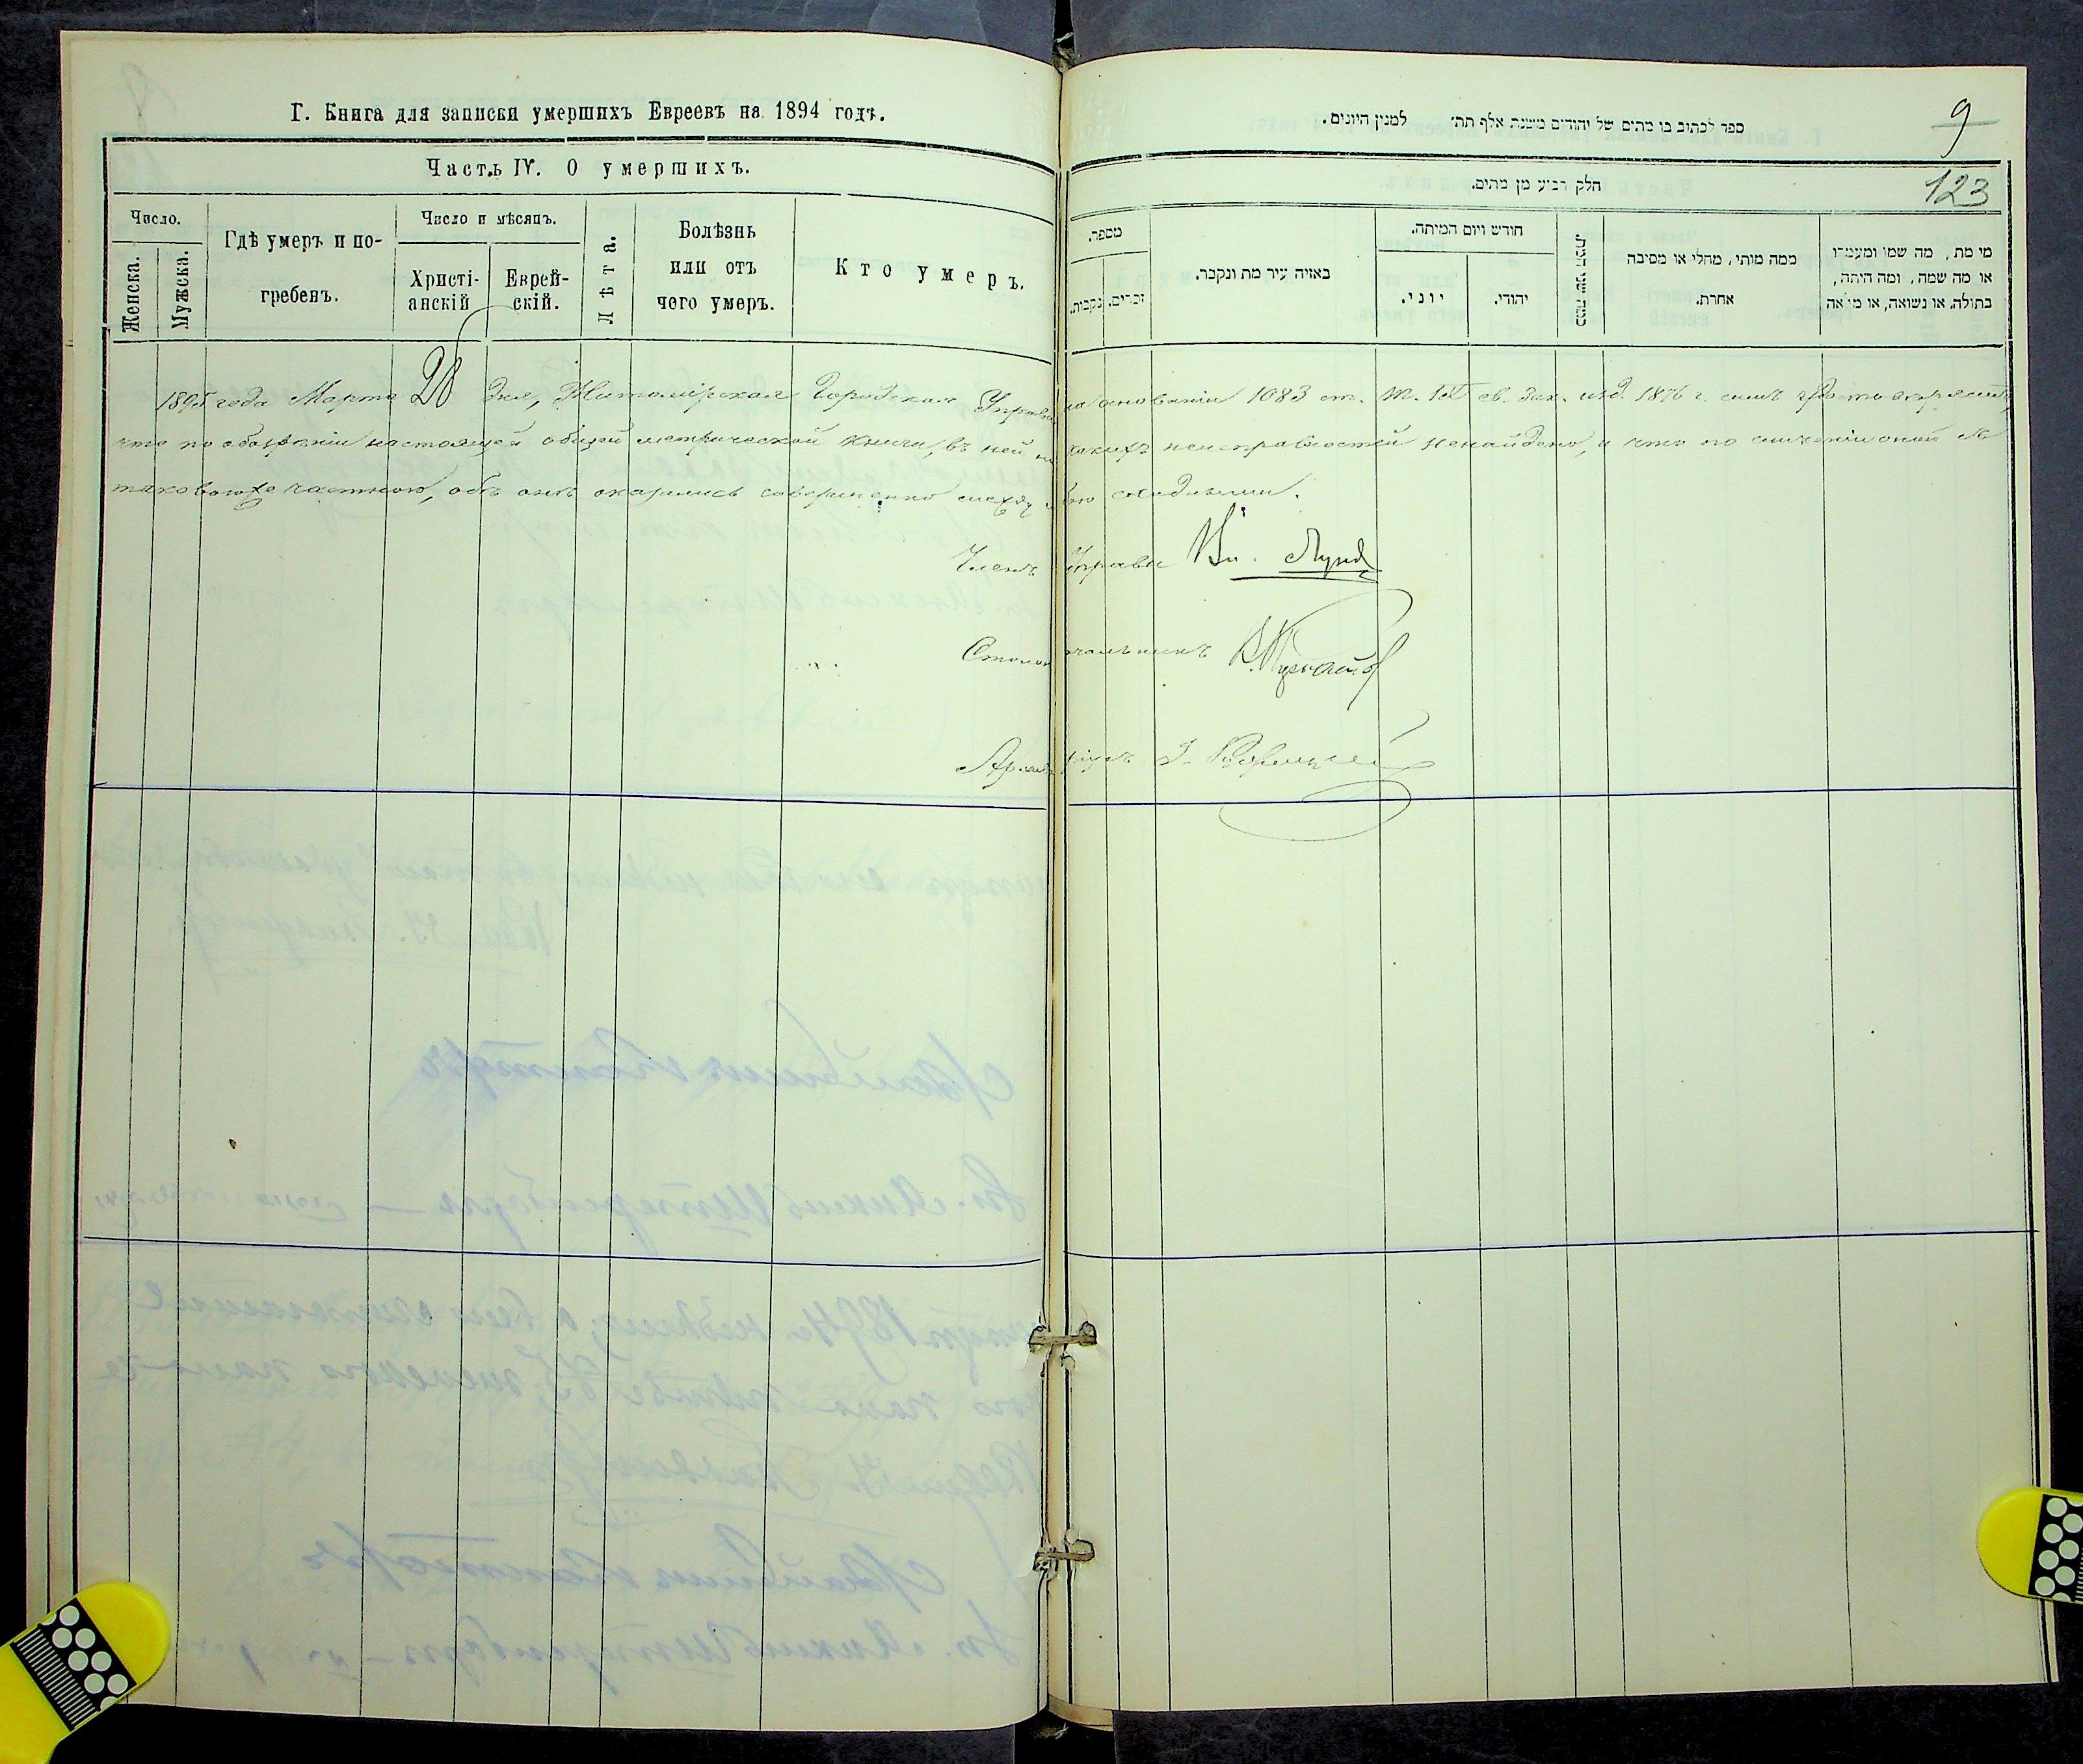 Г. Книга для записки умершихъ Евреевъ на 1894 годъ.
Часть IV. О умершихъ.
Число.
Женска.
Мужска.
Гдѣ умеръ и по-
гребенъ.
Число и мѣсяцъ.
Христі-
анскій
Еврей-
скій.
Лѣта.
Болѣзнь
или отъ
чего умеръ.
Кто умеръ.
ספר לכתוב בו מתים של יהודים משנת אלף תת׳ למנין היונים.
9
חלק רביע מן מתים.
123
מספר.
נקבות.
זכרים.
באיזה עיר מת ונקבר.
חודש ויום המיתה.
יוני.
יהודי.
כמה שני חיות.
ממה מותו, מחלי או מסיבה
אחרת.
מי מת, מה שמו ומעמדו
או מה שמה, ומה היתה,
בתולה, או נשואה, או
1895 года Марта 28 дня, Житомірская Городская Управа на основаніи 1083 ст. т. IX св. зак. изд. 1876 г. симъ
что по обозрѣніи настоящей общей метрической книги, въ ней никакихъ неисправностей ненайдено, и что по сличеніи оной съ
таковоюже частною, обѣ онѣ оказались совершенно между собою сходными.
Членъ Управы
Столоначальникъ
Архиваріусъ